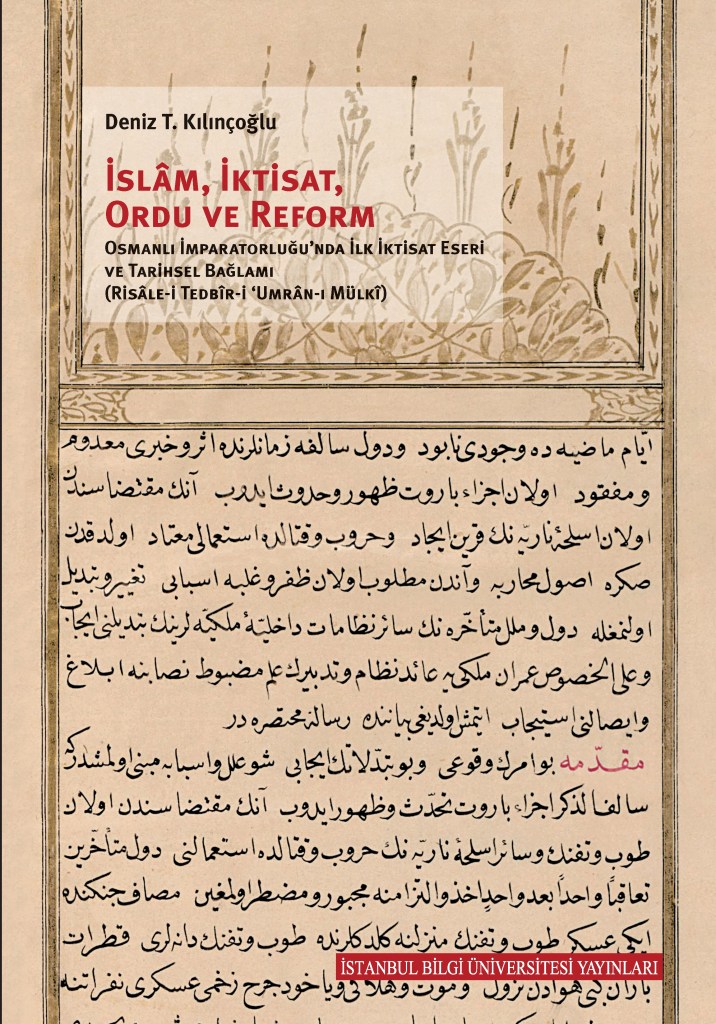 Deniz T. Kılınçoğlu
İSLÂM, İKTİSAT,
ORDU VE REFORM
OSMANLI İMPARATORLUĞU’NDA İLK İKTİSAT ESERİ
VE TARİHSEL BAĞLAMI
(RİSÂLE-İ TEDBÎR-İ ‘UMRÂN-I MÜLKÎ)
ایّام ماضیه ده وجودی نابود ودول سالفه زمانلرنده اثر وخبری معدوم
ومفقود اولان اجزاء باروت ظهور وحدوث ایدوب آنك مقتضاسندن
اولان اسلحۀ ناریّه نك قرین ایجاد وحروب وقتالده استعمالی معتاد اولدقدن
صكره اصول محاربه وآندن مطلوب اولان ظفر وغلبه اسبابی تغییر وتبدیل
اولنمغله دول وملل متأخّره نك سائر نظامات داخلیّۀ ملكیّه لرینك تبدیلنی ایجاب
وعلی الخصوص عمران ملكی یه عائد نظام وتدبیرك علم مضبوط نصابنه ابلاغ
وایصالنی استیجاب ایتمش اولدیغی بیاننده رسالۀ مختصره در
مقدّمه بو امرك وقوعی وبو تبدّلاتك ایجابی شو علل واسبابه مبنی اولمشدركه
سالف الذكر اجزاء باروت تحدّث وظهور ایدوب آنك مقتضاسندن اولان
طوب وتفنك وسائر اسلحۀ ناریّه نك حروب وقتالده استعمالنی دول متأخّرین
تعاقباً واحداً بعد واحدٍ اخذ والتزامنه مجبور ومضطر اولمغین مصاف جنكنده
ایكی عسكر طوب وتفنك منزلنه كلدكلرنده طوب وتفنك دانه لری قطرات
باران كبی هوادن نزول وموت وهلاكی ویاخود جرح زخمی عسكری نفراتنه
İSTANBUL BİLGİ ÜNİVERSİTESİ YAYINLARI